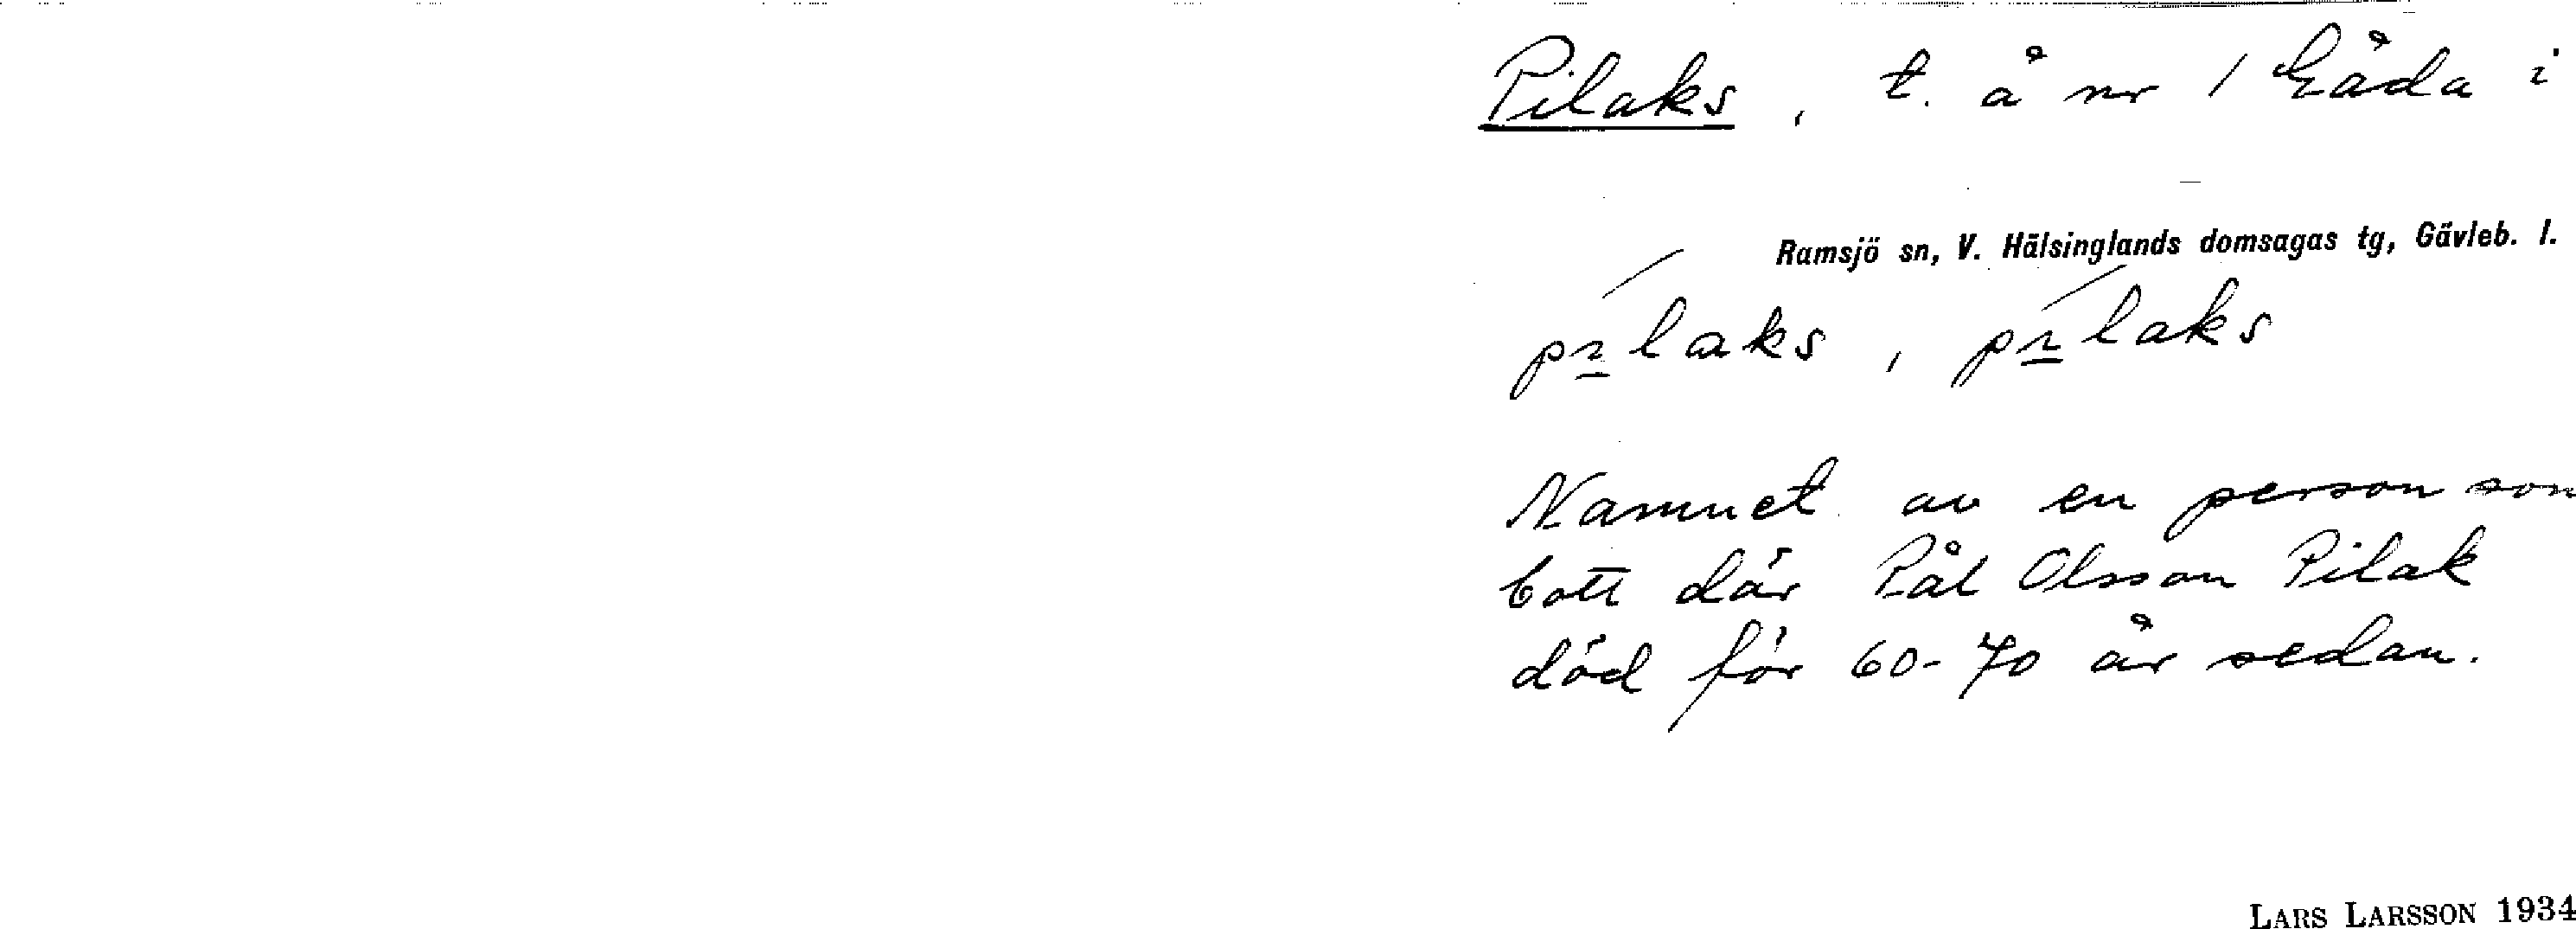 Pilaks, t. å nr 1 Gåda i
Ramsjö sn, V. Hälsinglands domsagas tg, Gävleb. l.
pɩ̲́laks, pɩ̲́laks
Namnet av en person som
bott där Pål Olsson Pilak
död för 60-70 år sedan.
LARS LARSSON 1934